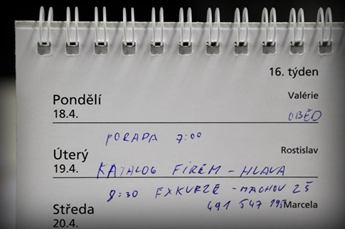 16. týden
Pondělí Valérie
18.4. OBĚD
PORADA 7:00
Úterý Rostislav
19.4. KATALOG FIREM - HLAVA
8:30 EXKURZE - MACHOV ZŠ
Středa 491 547 195 Marcela
20.4.